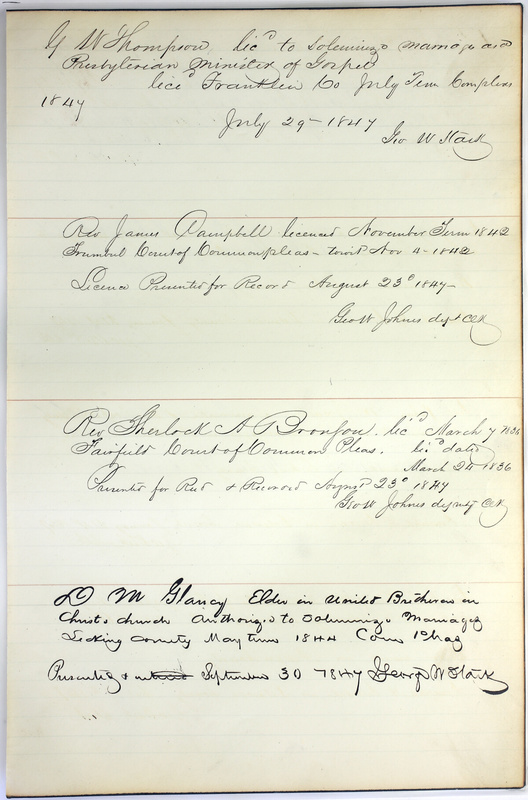 G W Thompson lic^d to solemnize marriage as a
Presbyterian Minister of Gospel
lice^d Franklin Co July Term Com pleas
1847
July 29 - 1847
Geo W Stark
Rev James Campbell licenced November Term 1842
Trumbul Court of Common pleas - towit Nov 4 - 1842
Licence Presented for Record August 23^d 1847 -
Geo W Johnes dept Clk
Rev Sherlock A Bronson. lic^d March 7 1836
Fairfield Court of Common Pleas. lic^d dated
March 24 1836
Presented for Red & Recorded August 23^d 1847
Geo W Johnes deputy Clk
D M Glancy Elder in United Bretheren in
Christ church Authorized to Solemnize Marriages
Licking county May term 1844 Com Pleas
Presented & September 30 1847 George W Stark